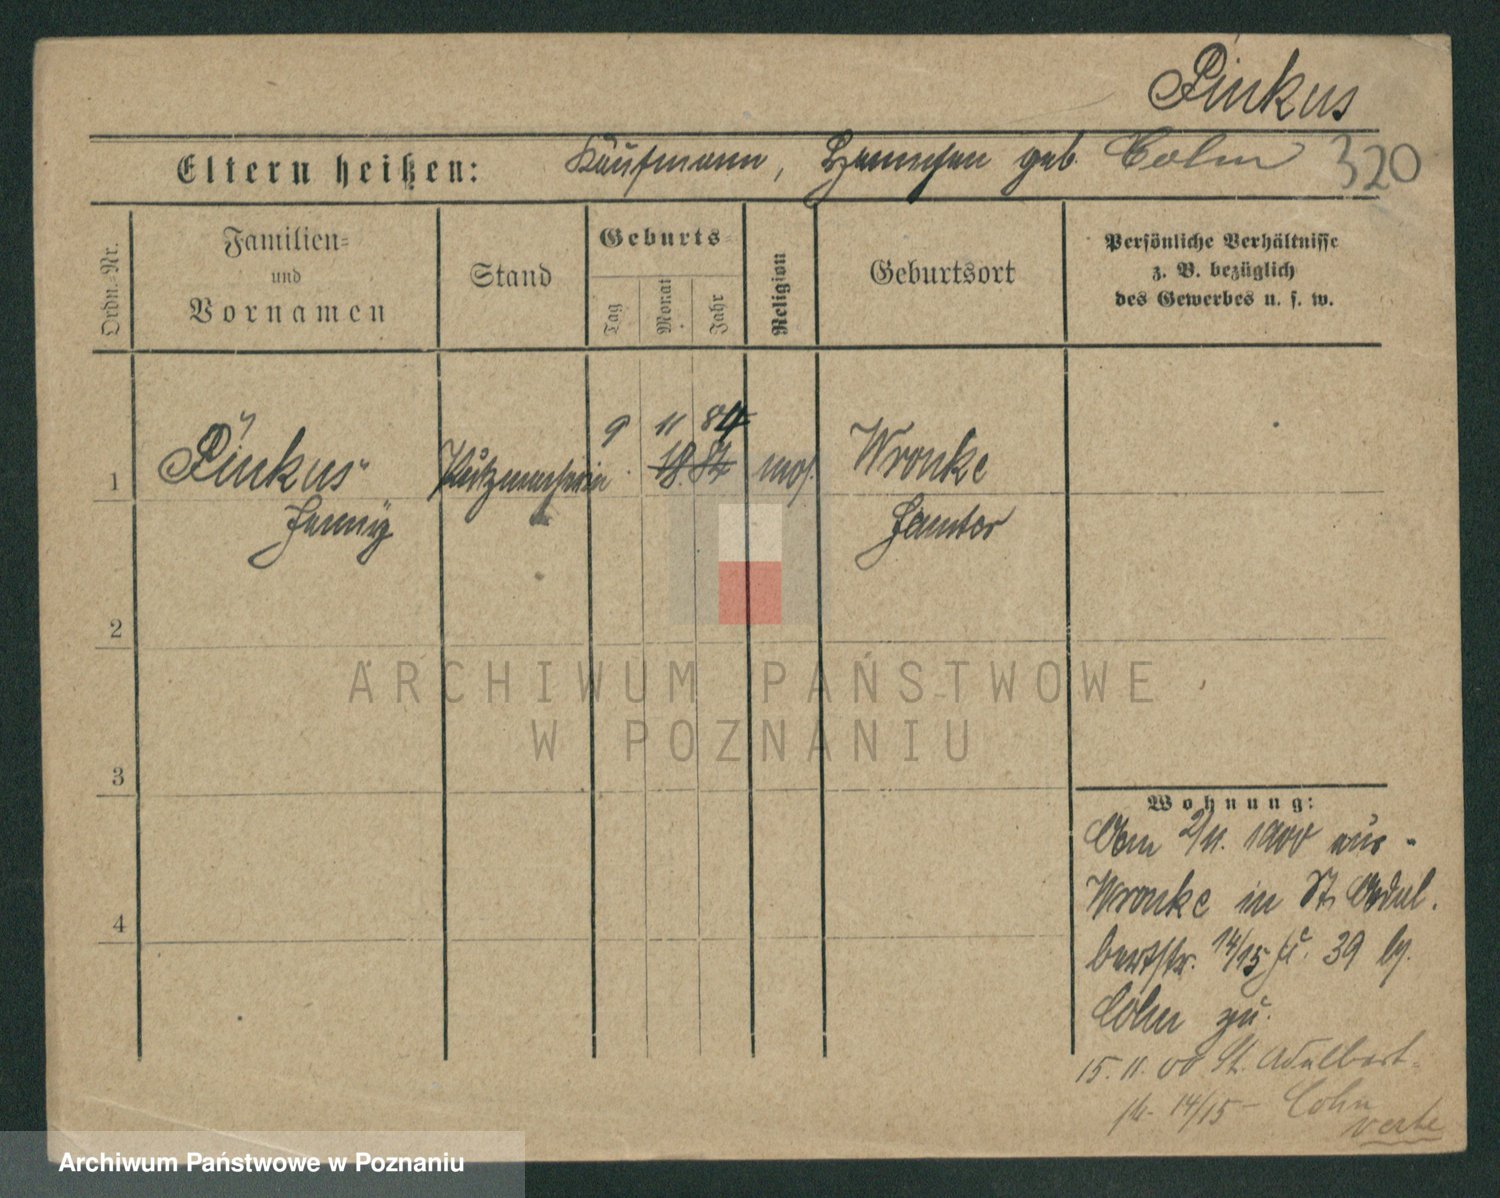 Pinkus
Eltern heißen: Kaufmann, Hannchen geb. Cohn 320
Ordn.-Nr.
Familien=
und
Vornamen
Stand
Geburts=
Tag
Monat
Jahr
Religion
Geburtsort
Persönliche Verhältnisse
z. B. bezüglich
des Gewerbes u. s. w.
9 11 84
1 Pinkus Putzmacherin 18. 84 mos. Wronke
Jenny Samter
2
3
4
ARCHIWUM PAŃSTWOWE
W POZNANIU
Wohnung:
Vom 2/11. 1900 aus
Wronke in St. Adal-
bertstr. 14/15 39 bei
Cohn zu.
15. 11. 00 St. Adalbert-
str. 14/15 - Cohn
verte
Archiwum Państwowe w Poznaniu